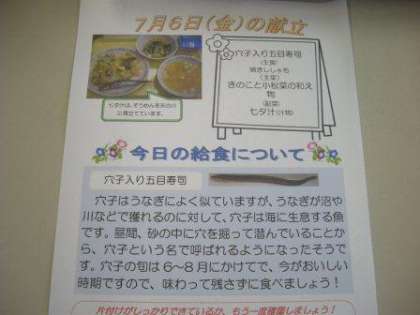 7月6日(金)の献立
穴子入り五目寿司
(主食)
焼きししゃも
(主菜)
きのこと小松菜の和え
物
(副菜)
七夕汁(汁物)
七夕汁は、そうめんを天の川
に見立てています。
今日の給食について
穴子入り五目寿司
穴子はうなぎによく似ていますが、うなぎが沼や
川などで獲れるのに対して、穴子は海に生息する魚
です。昼間、砂の中に穴を掘って潜んでいることか
ら、穴子という名で呼ばれるようになったそうで
す。穴子の旬は6～8月にかけてで、今がおいしい
時期ですので、味わって残さずに食べましょう！
片付けがしっかりできているか、もう一度確認しましょう！